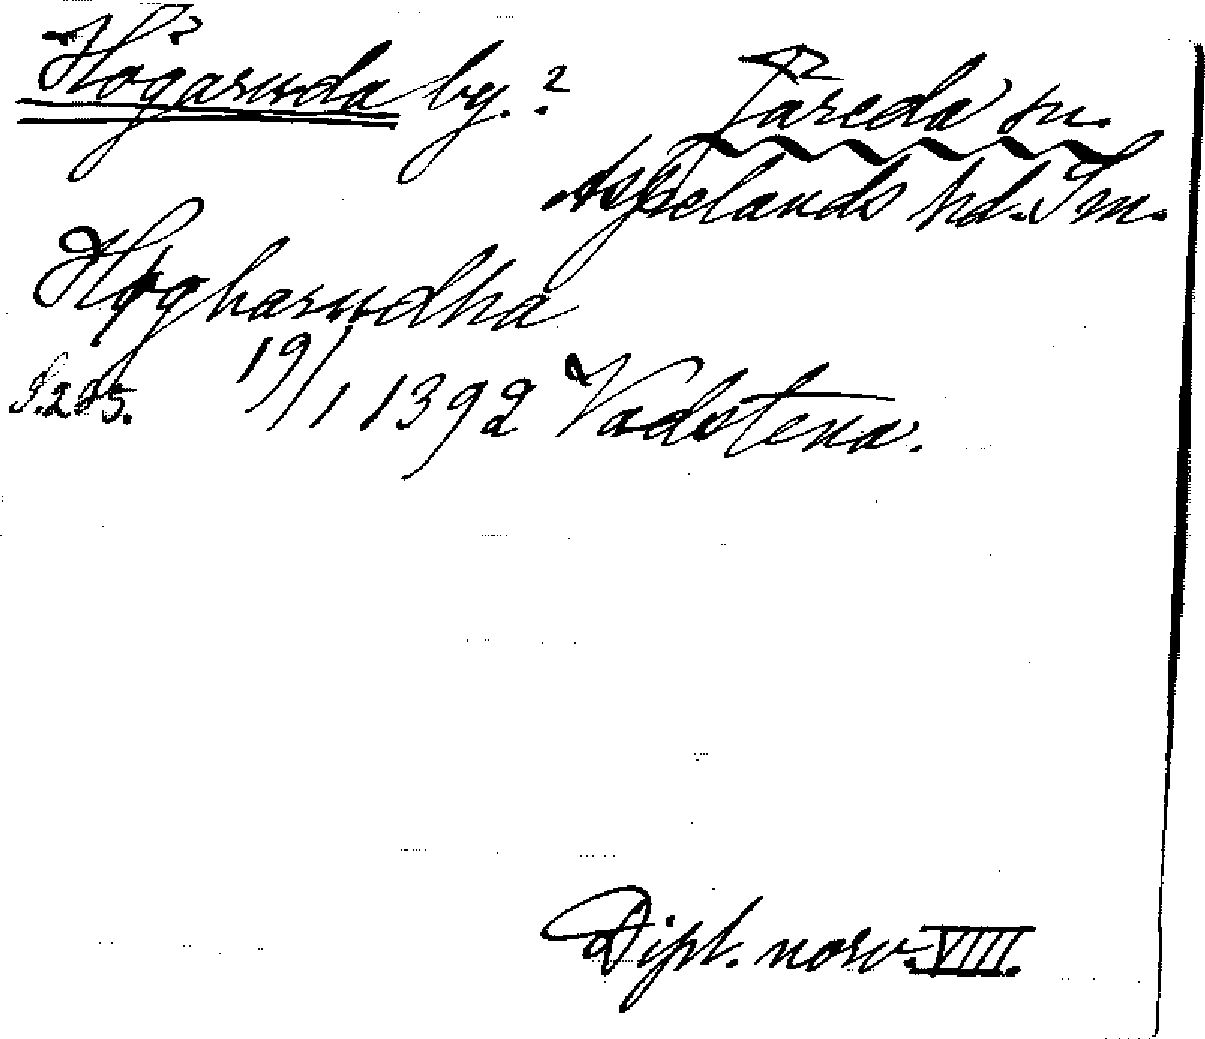 Högaruda by. ?
Järeda sn.
Aspelands hd. Sm.
Högharudha
S. 285. 19/1 1392 Vadstena.
Dipl. norv. VIII.